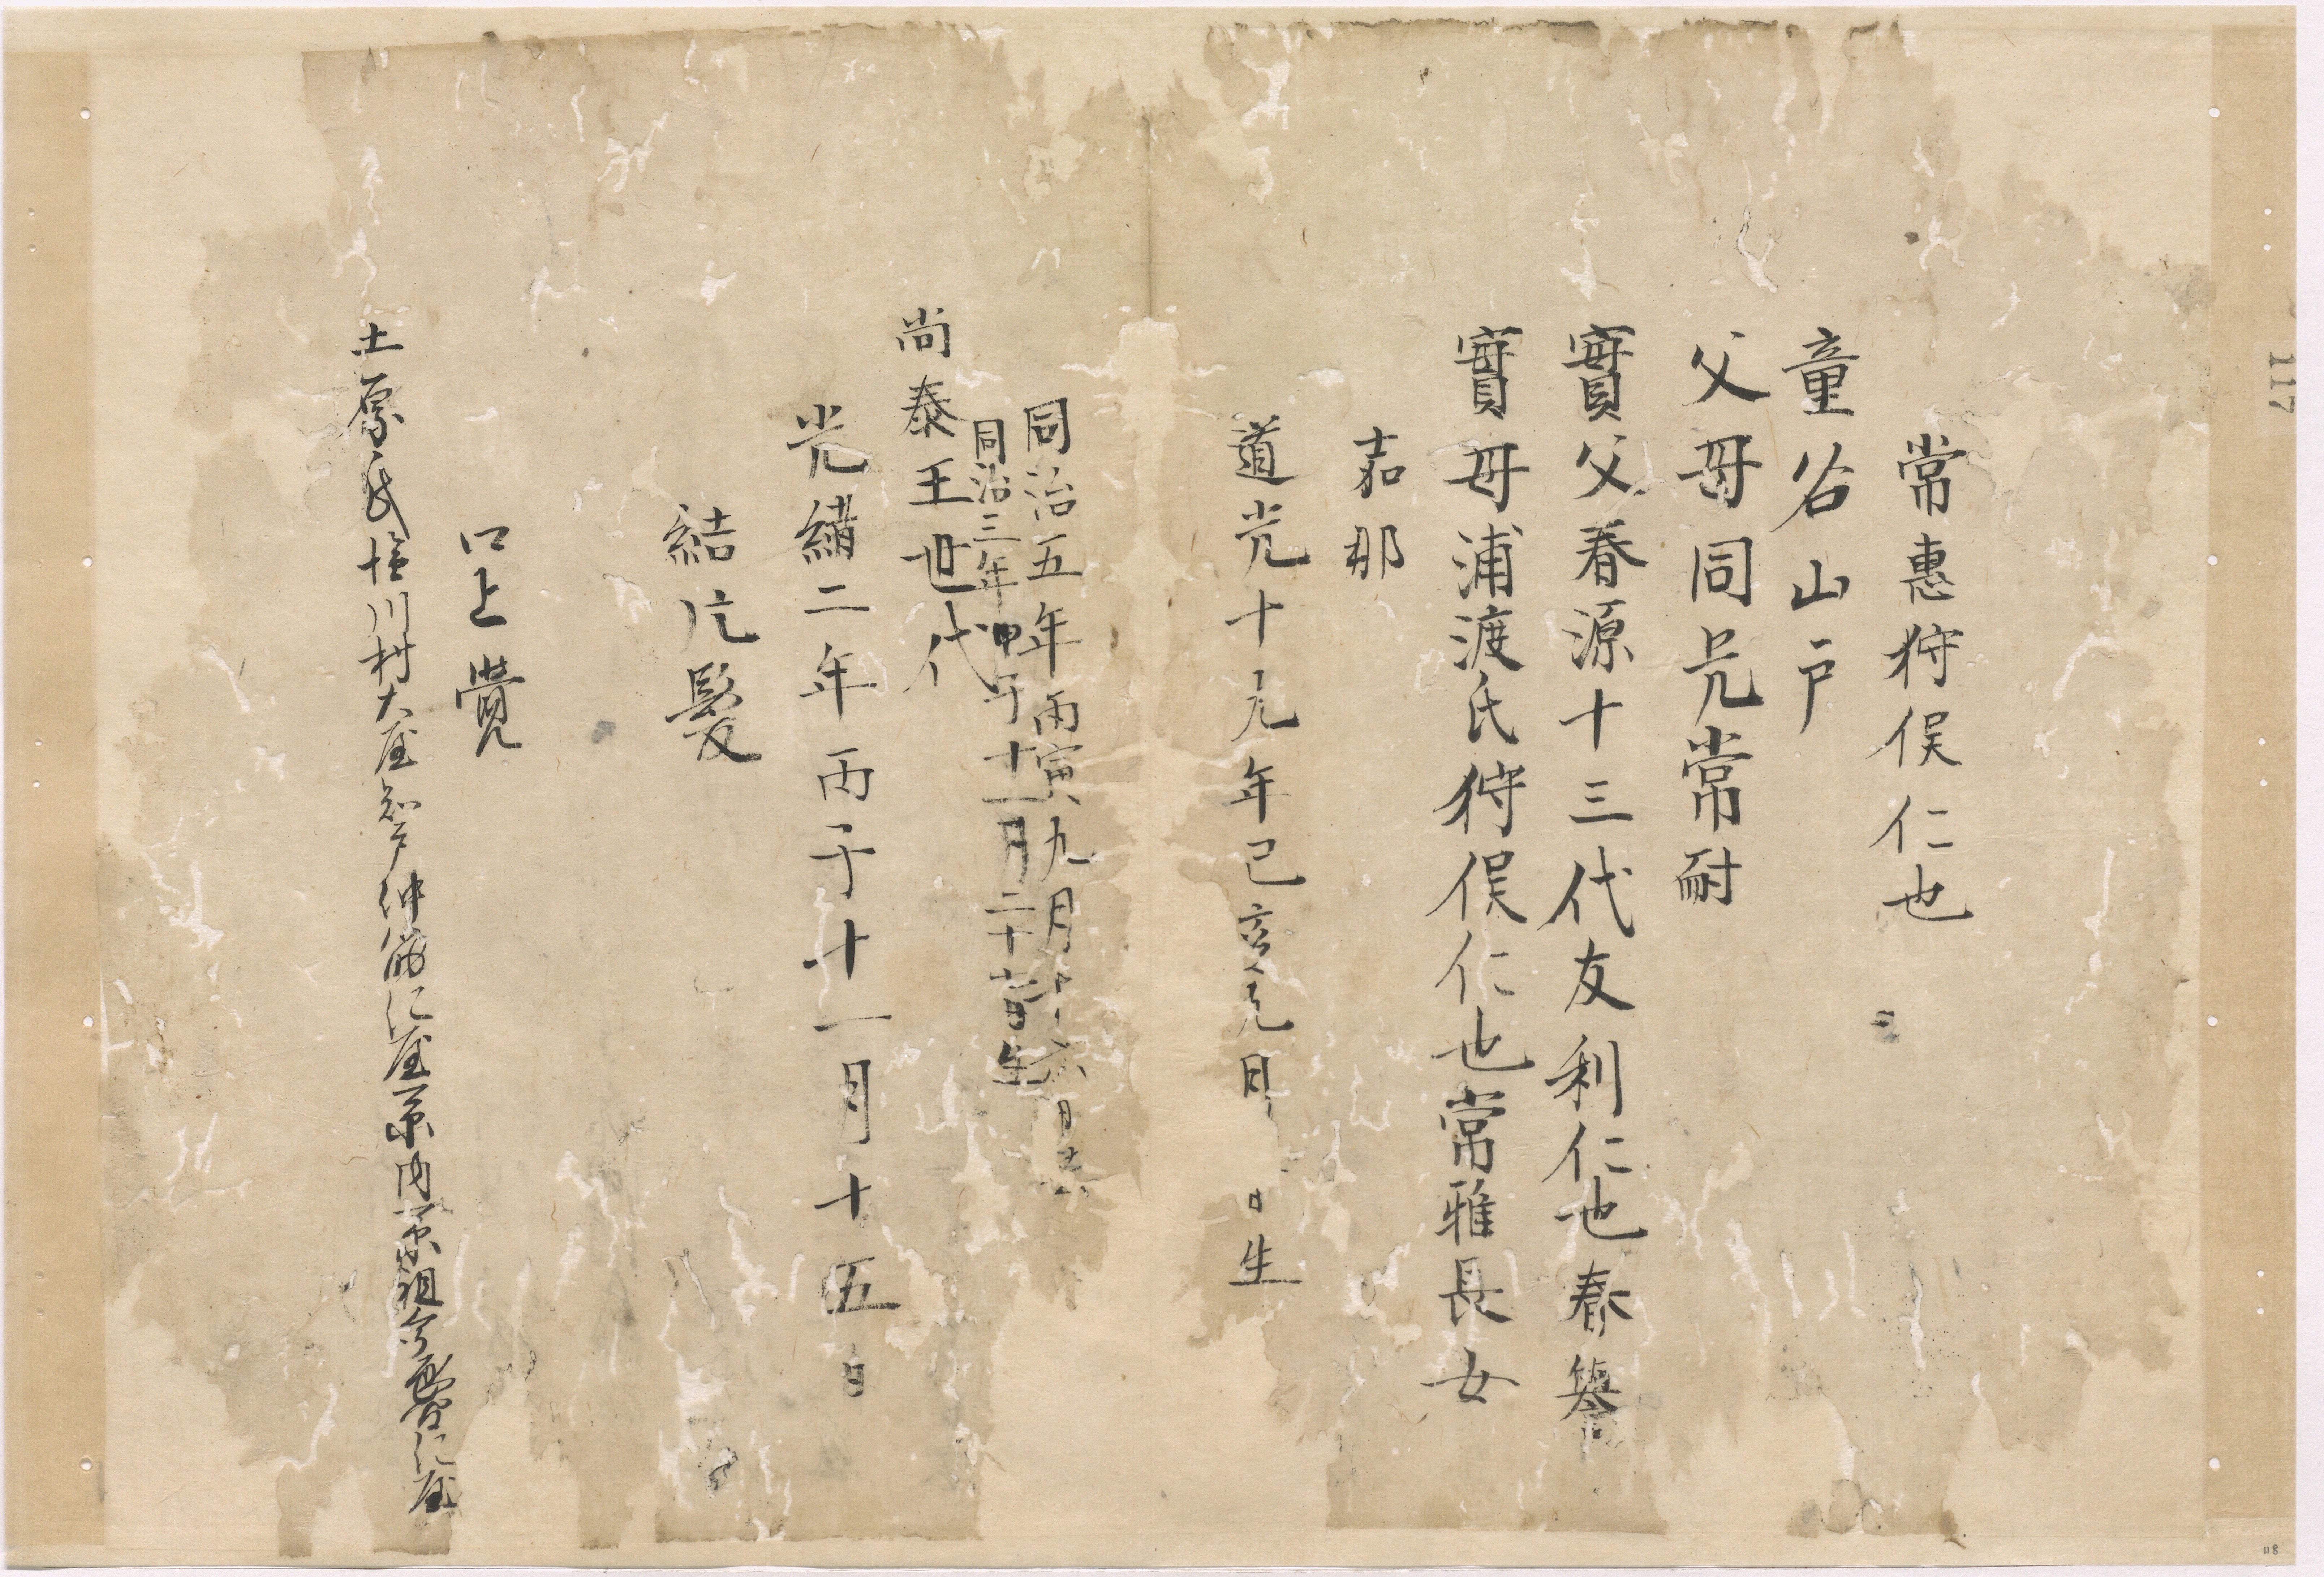 常惠狩俣仁也
童名山戸
父母同兄常耐
實父春源十三代友利仁也春
實母浦渡氏狩俣仁也常雅長女
嘉那
道光十九年己亥九月 日生
同治五年丙寅九月十六
同治三年甲子十一月二十 日生
尚泰王世代
光緒二年丙子十一月十五日
結片髮
口上覺
土原氏 川村大 仲 氏
117
118